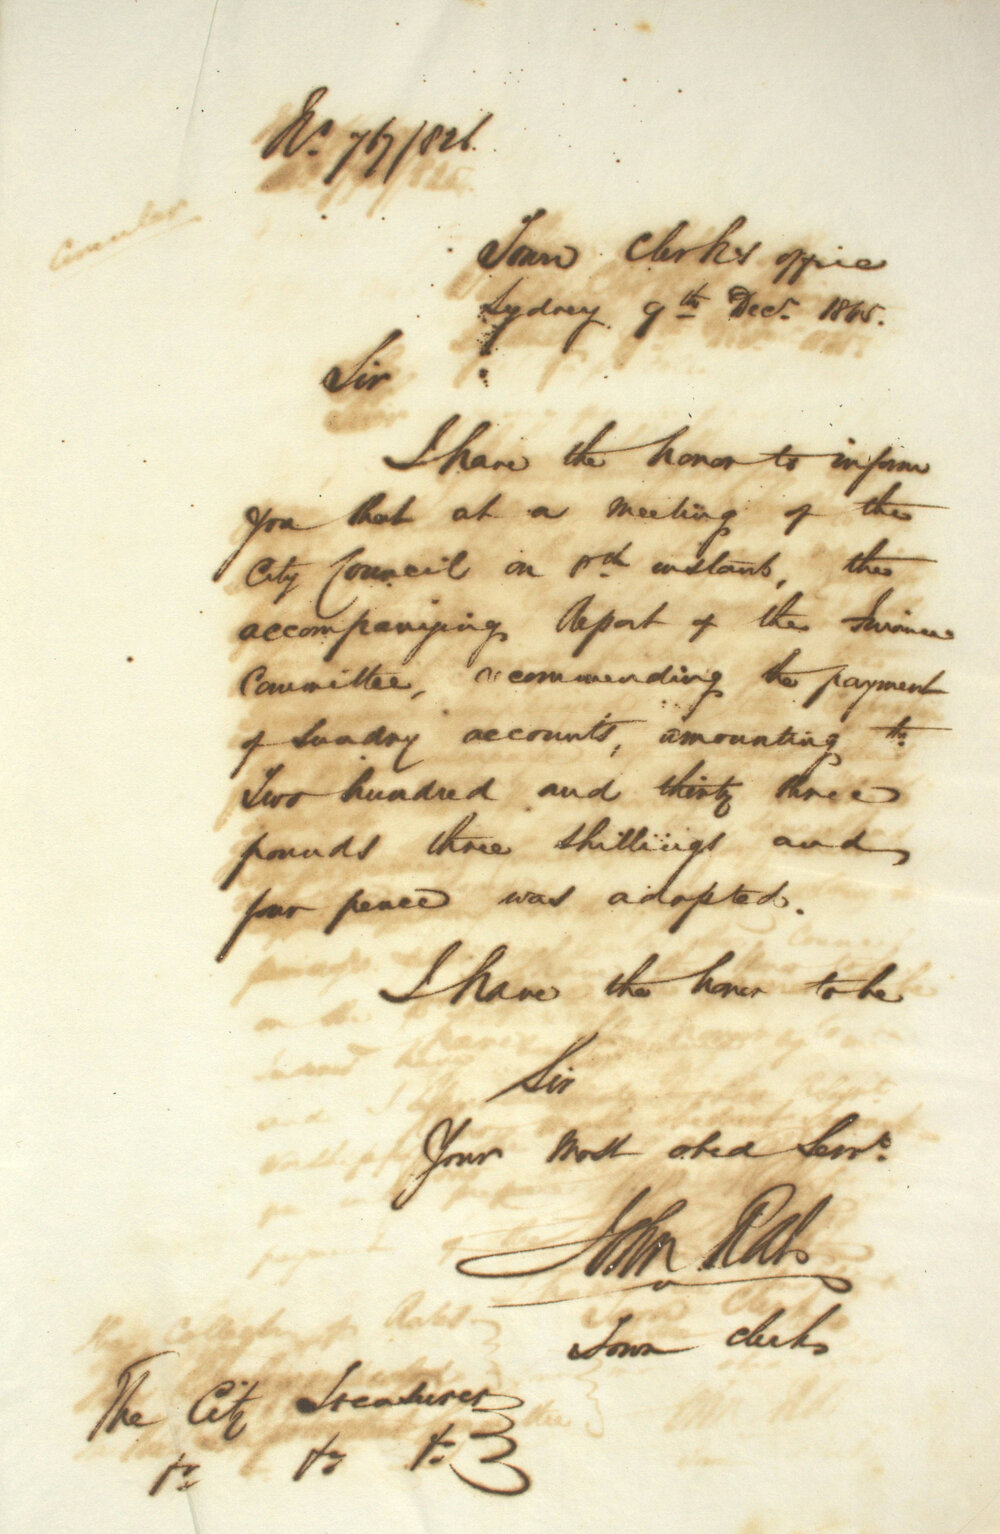 No. 767/826.
Circular
Town Clerk's office
Sydney 9th Decr. 1865.
Sir
I have the honor to inform
you that at a meeting of the
City Council on 8th instant, the
accompanying Report of the Finance
Committee, recommending the payment
of Sundry accounts, amounting to
Two hundred and thirty three
pounds three shillings and
four pence was adopted.
I have the honor to be
Sir
Your most obed Servt.
John Rae
Town Clerk
The City Treasurer
&c &c &c